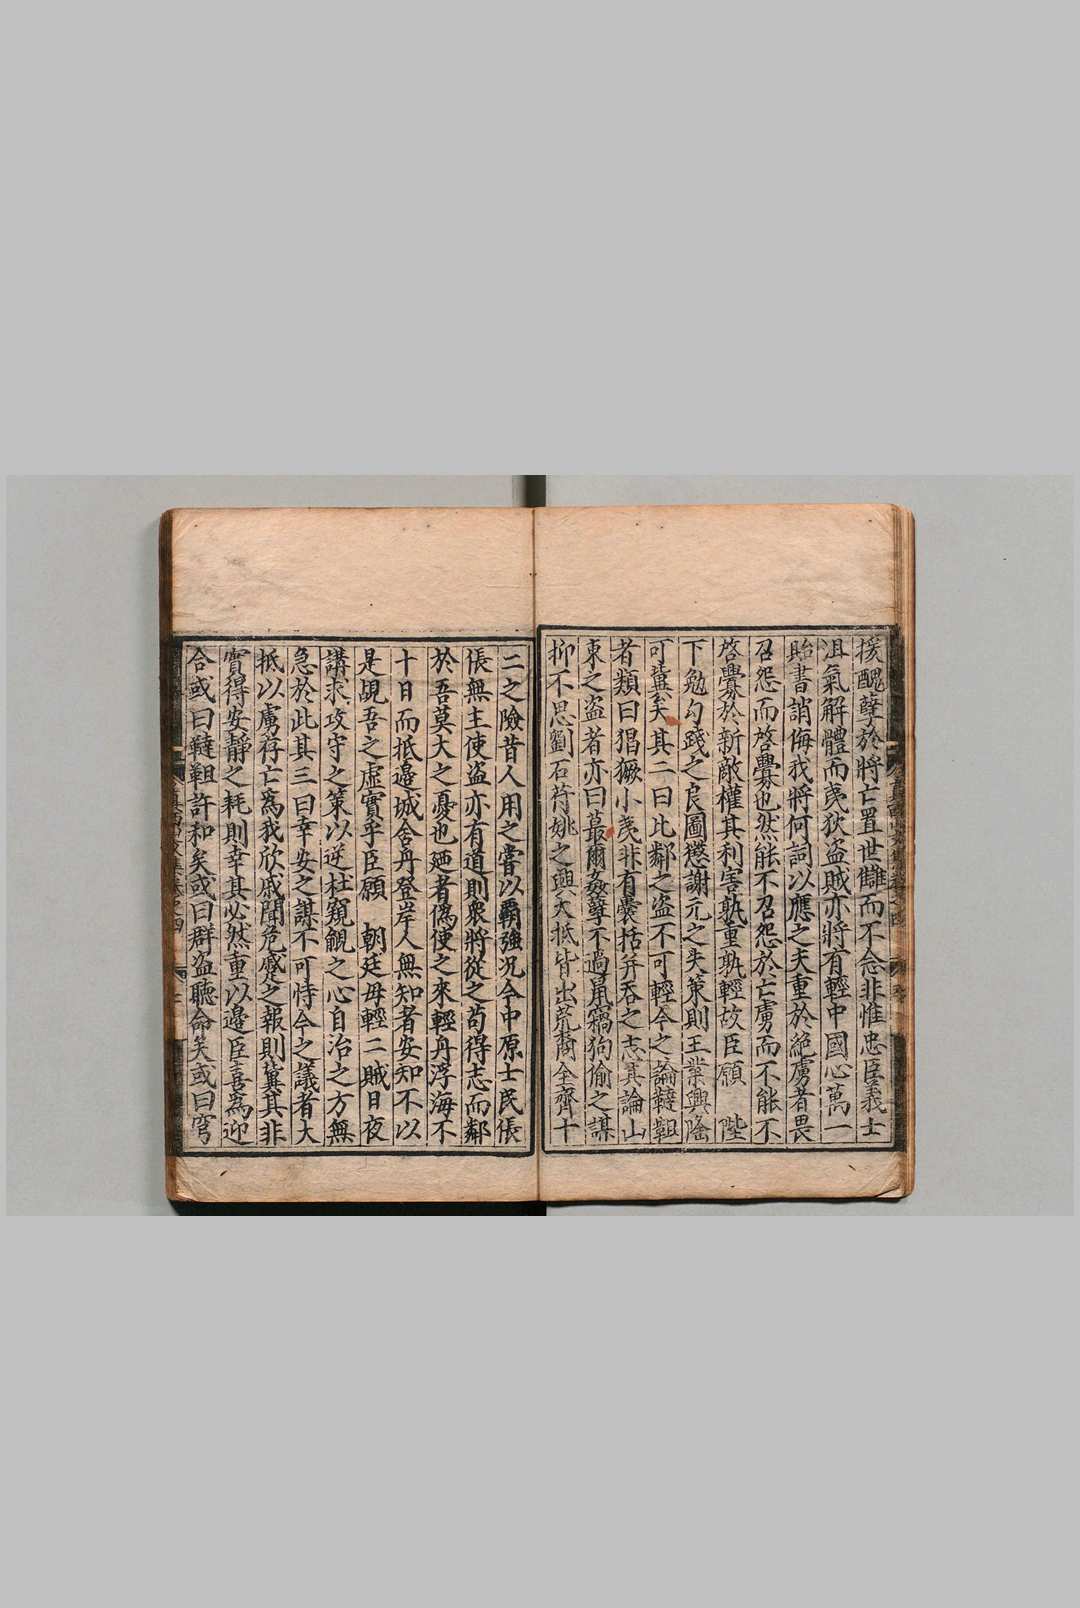 援醜孽於將亡置世讎而不念非惟忠臣義士
沮氣解體而夷狄盗賊亦將有輕中國心萬一
貽書誚侮我將何詞以應之夫重於絶虜者畏
召怨而啓釁也然能不召怨於亡虜而不能不
啓釁於新敵權其利害孰重孰輕故臣願　陛
下勉勾踐之良圖懲謝元之失策則王業興隆
可冀矣其二曰比鄰之盗不可輕今之論韃靼
者類曰猖獗小夷非有囊括并吞之志其論山
東之盗者亦曰蕞爾姦孽不過鼠竊狗偷之謀
抑不思劉石苻姚之興大抵皆出荒裔全齊十
二之險昔人用之嘗以覇強况今中原士民倀
倀無主使盗亦有道則衆將從之苟得志而鄰
於吾莫大之憂也廼者僞使之來輕舟浮海不
十日而抵邉城舍舟登岸人無知者安知不以
是覘吾之虚實乎臣願　朝廷毋輕二賊日夜
講求攻守之策以逆杜窺覦之心自治之方無
急於此其三曰幸安之謀不可恃今之議者大
抵以虜存亡爲我欣戚聞危蹙之報則冀其非
實得安靜之耗則幸其必然重以邉臣喜爲迎
合或曰韃靼許和矣或曰群盗聽命矣或曰穹